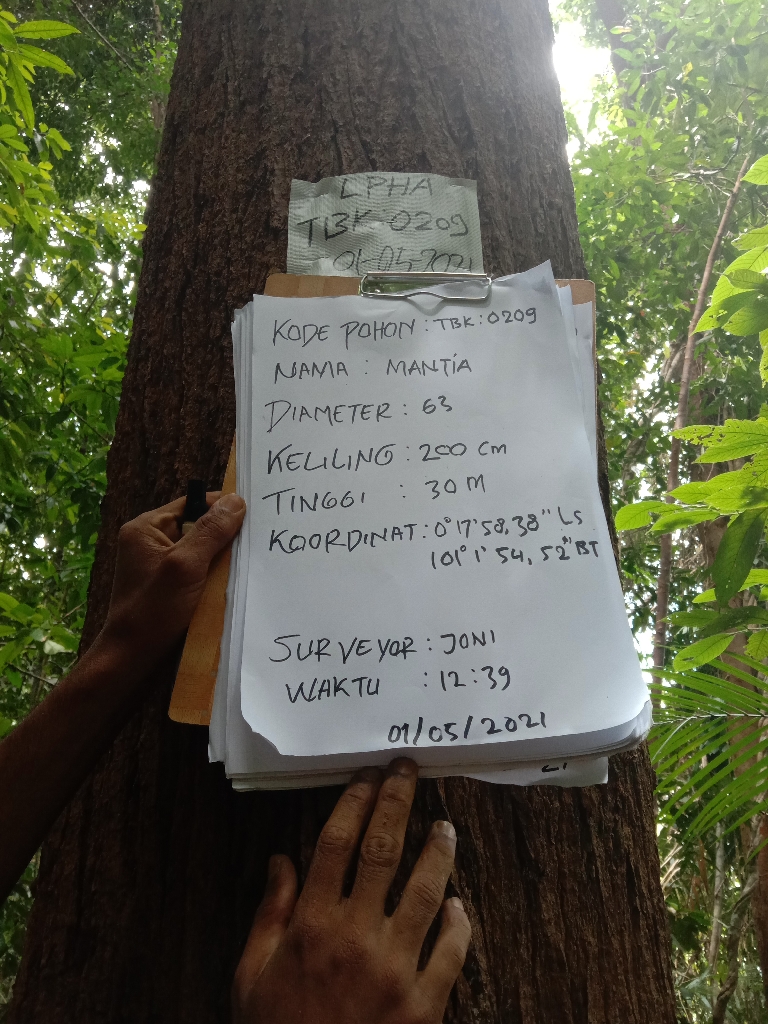 LPHA
TBK-0209
01-05-2021
KODE POHON : TBK:0209
NAMA : MANTIA
DIAMETER : 63
KELILING : 200 cm
TINGGI : 30 M
KOORDINAT : 0°17'58,38" LS
101°1'54,52" BT
SURVEYOR : JONI
WAKTU : 12:39
01/05/2021